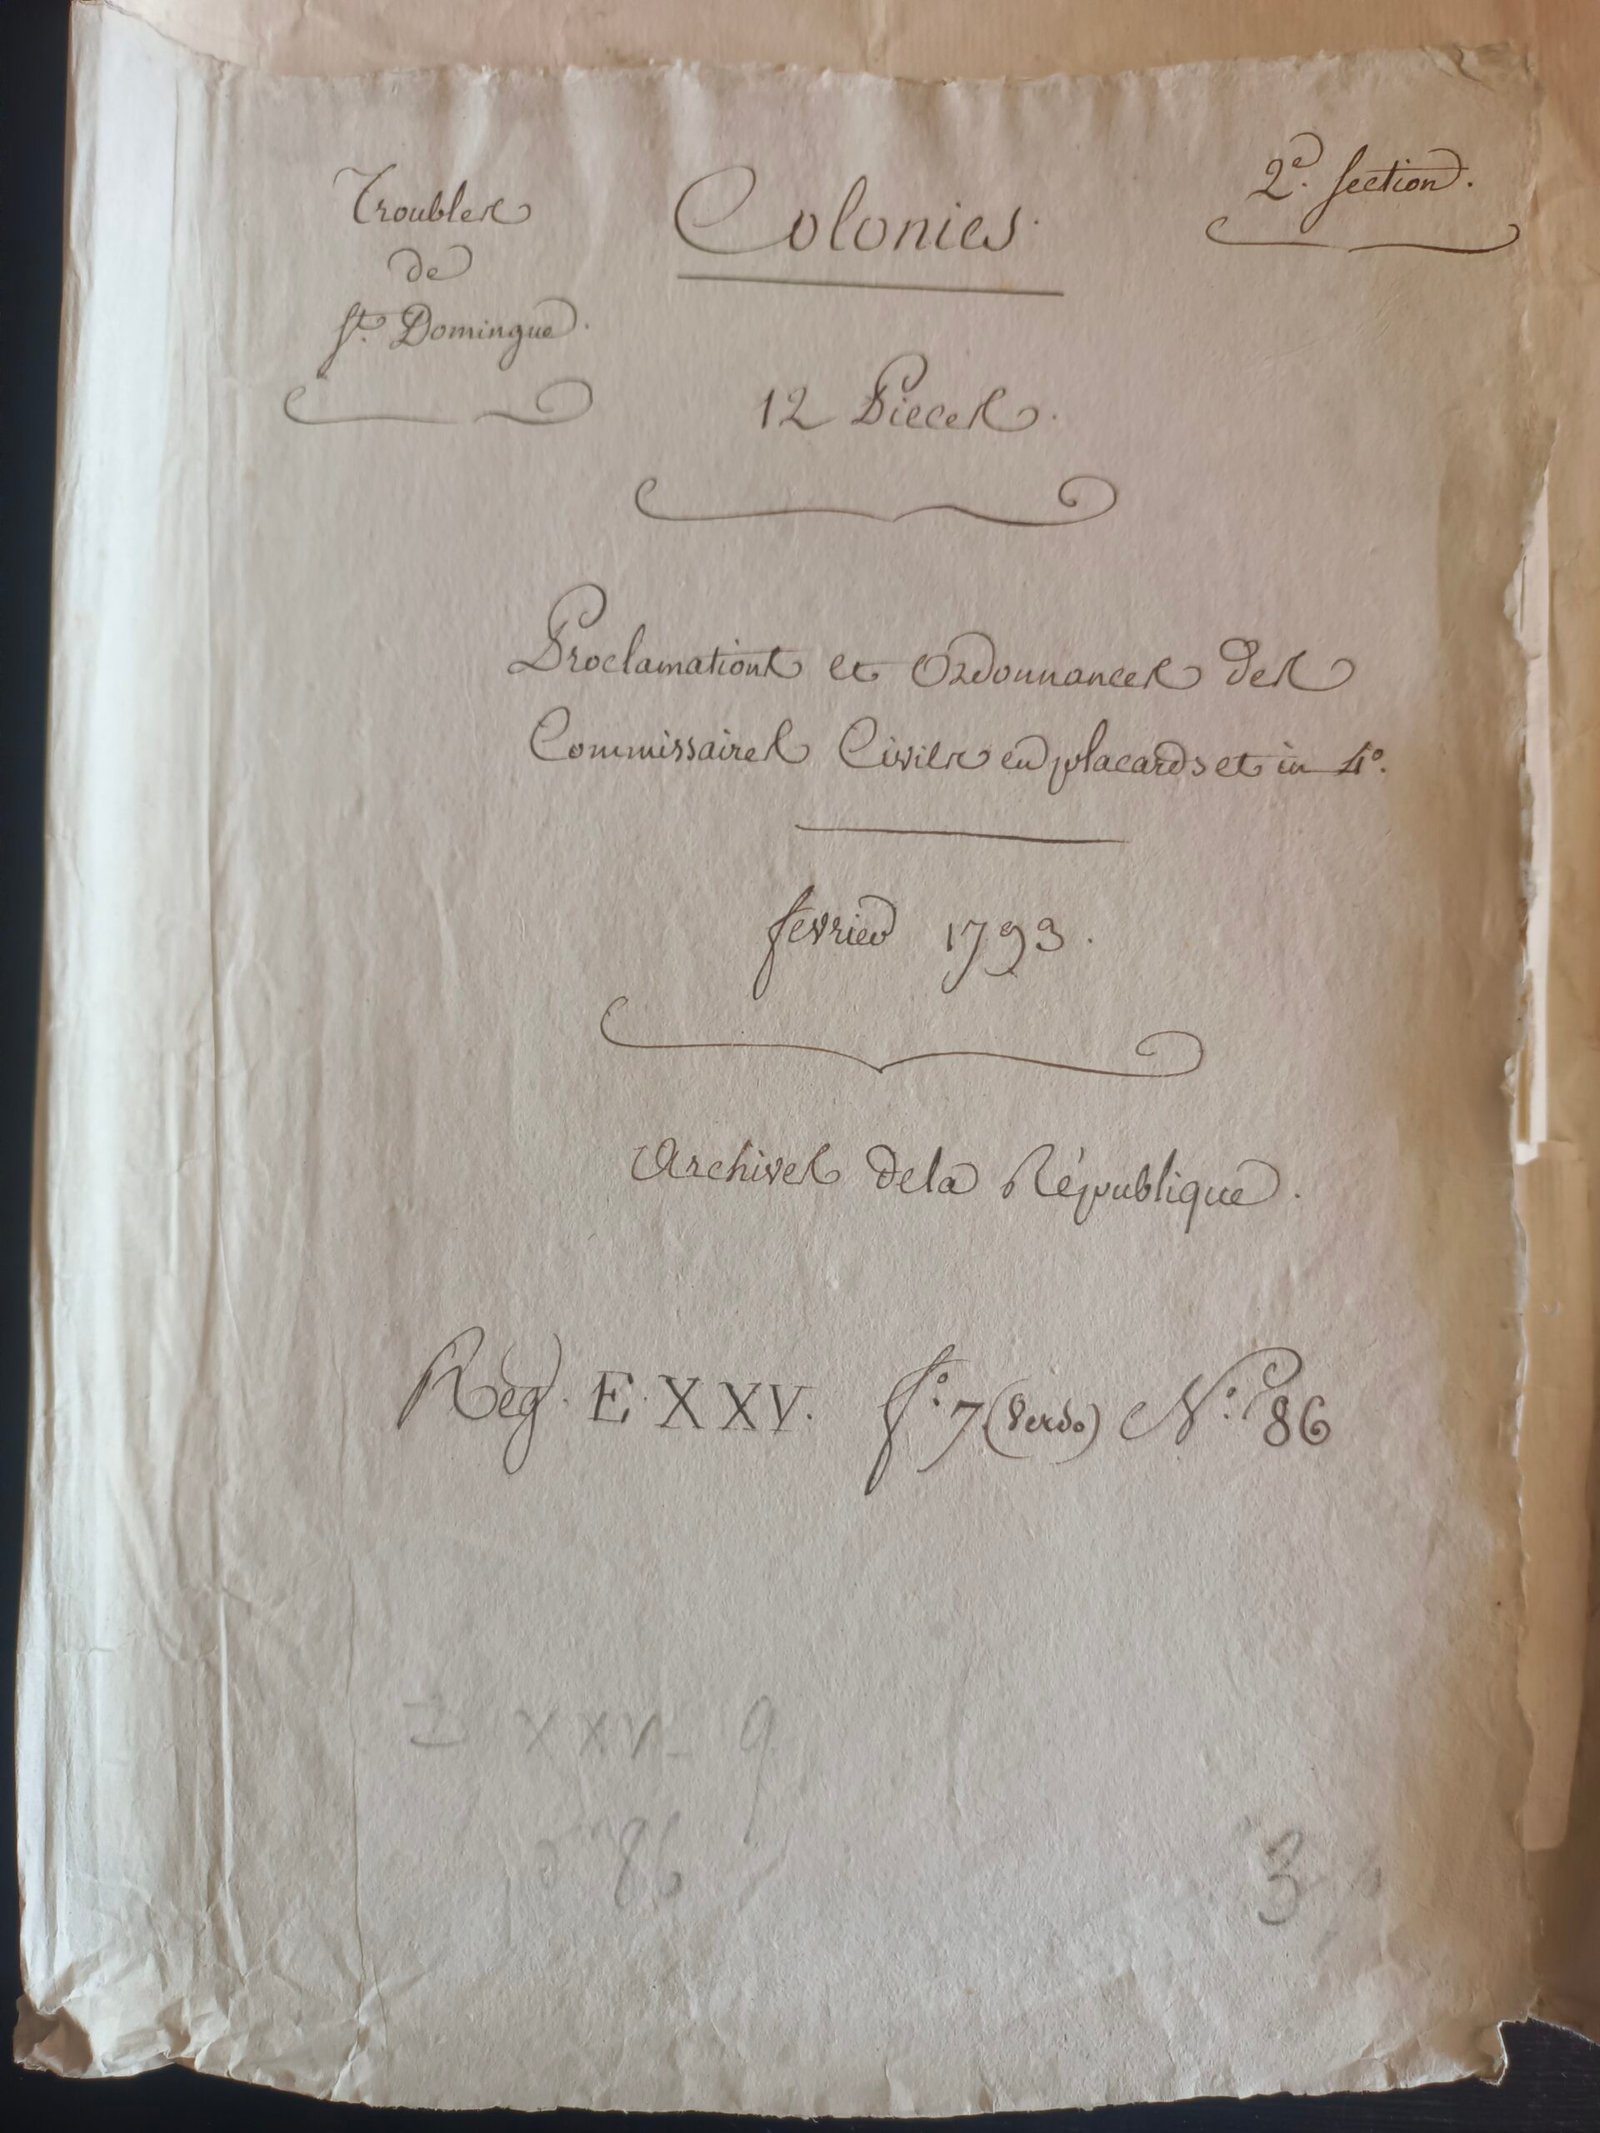 Troubles
de
St. Domingue.
Colonies.
2e. Section.
12 Pieces.
Proclamations et Ordonnances des
Commissaires Civils en placards et in 4º.
fevrier 1793.
Archives dela République.
Reg. E. XXV. fº. 7 (verso) Nº. 86
XXV-9
86
3